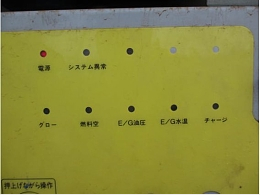 電源 システム異常
グロー 燃料空 E/G油圧 E/G水温 チャージ
押上げながら操作